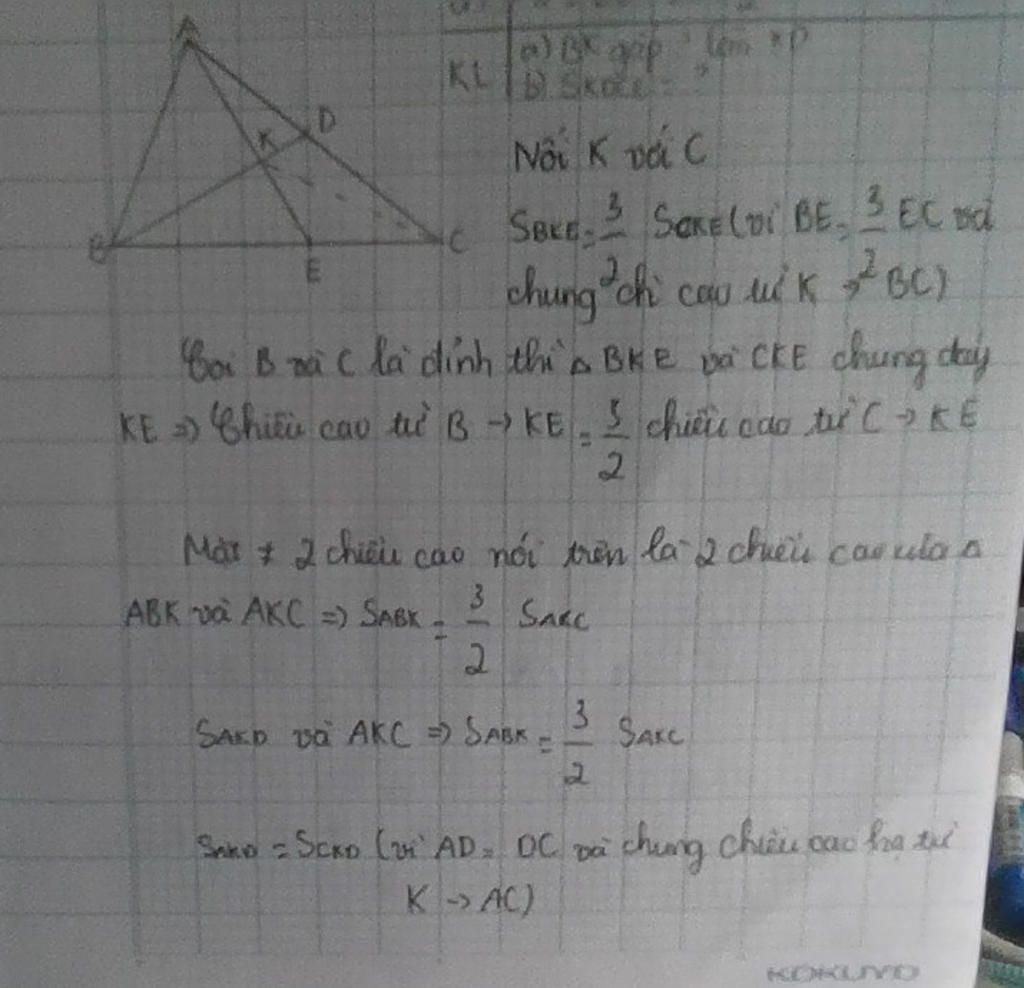 KL a) BK gấp ? lần KD
b) SKDCE = ?
A
D
K
B
C
E
Nối K với C
SBKE = 3/2 SCKE (vì BE = 3/2 EC và
chung chi cao từ K → BC)
Coi B và C là đỉnh thì △ BKE và CKE chung đáy
KE => Chiều cao từ B → KE = 3/2 chiều cao từ C → KE
Mặt ≠ 2 chiều cao nói trên là 2 chiều cao của △
ABK và AKC => SABK = 3/2 SAKC
SAKD và AKC => SABK = 3/2 SAKC
SAKD = SCKD (vì AD = DC và chung chiều cao hạ từ
K → AC)
KOKUYO